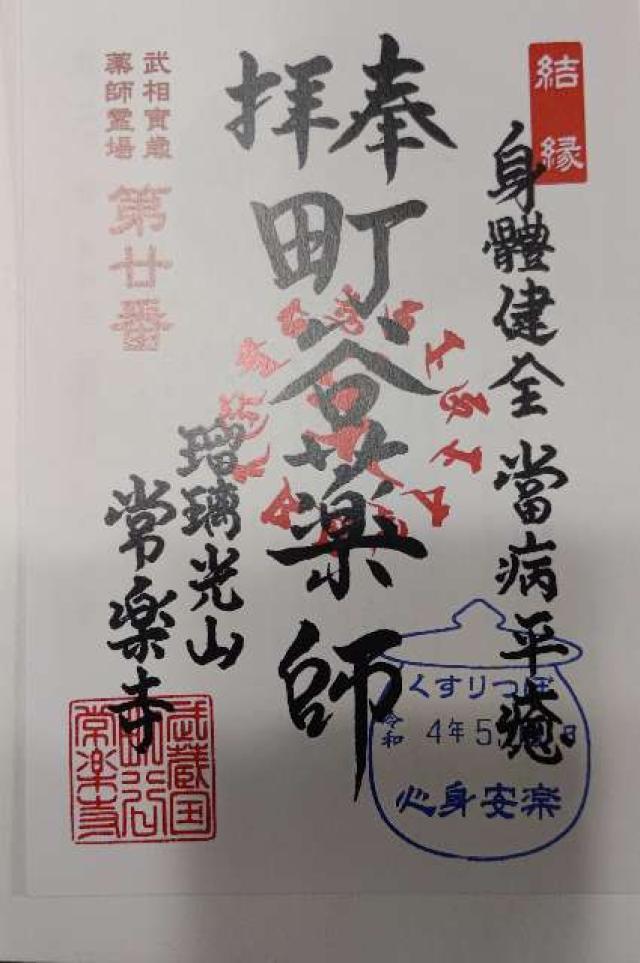 結縁
身體健全 當病平癒
奉拝
町谷薬師
瑠璃光山
常楽寺
武相寅歳
薬師霊場
第廿番
くすりつぼ
令和
4年5
日
心身安楽
武蔵国
町谷
常楽寺